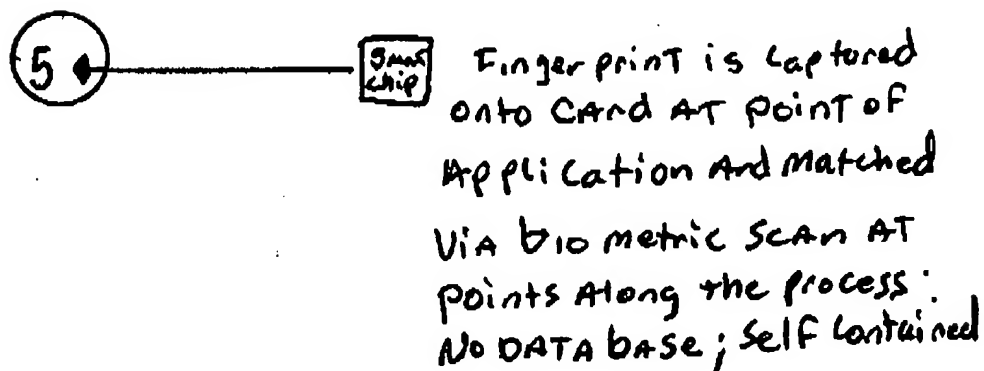 5
Smart
chip
Fingerprint is captured
onto CArd AT point of
Application And matched
ViA biometric ScAn AT
points Along the process:
No DATA bASe; Self Contained